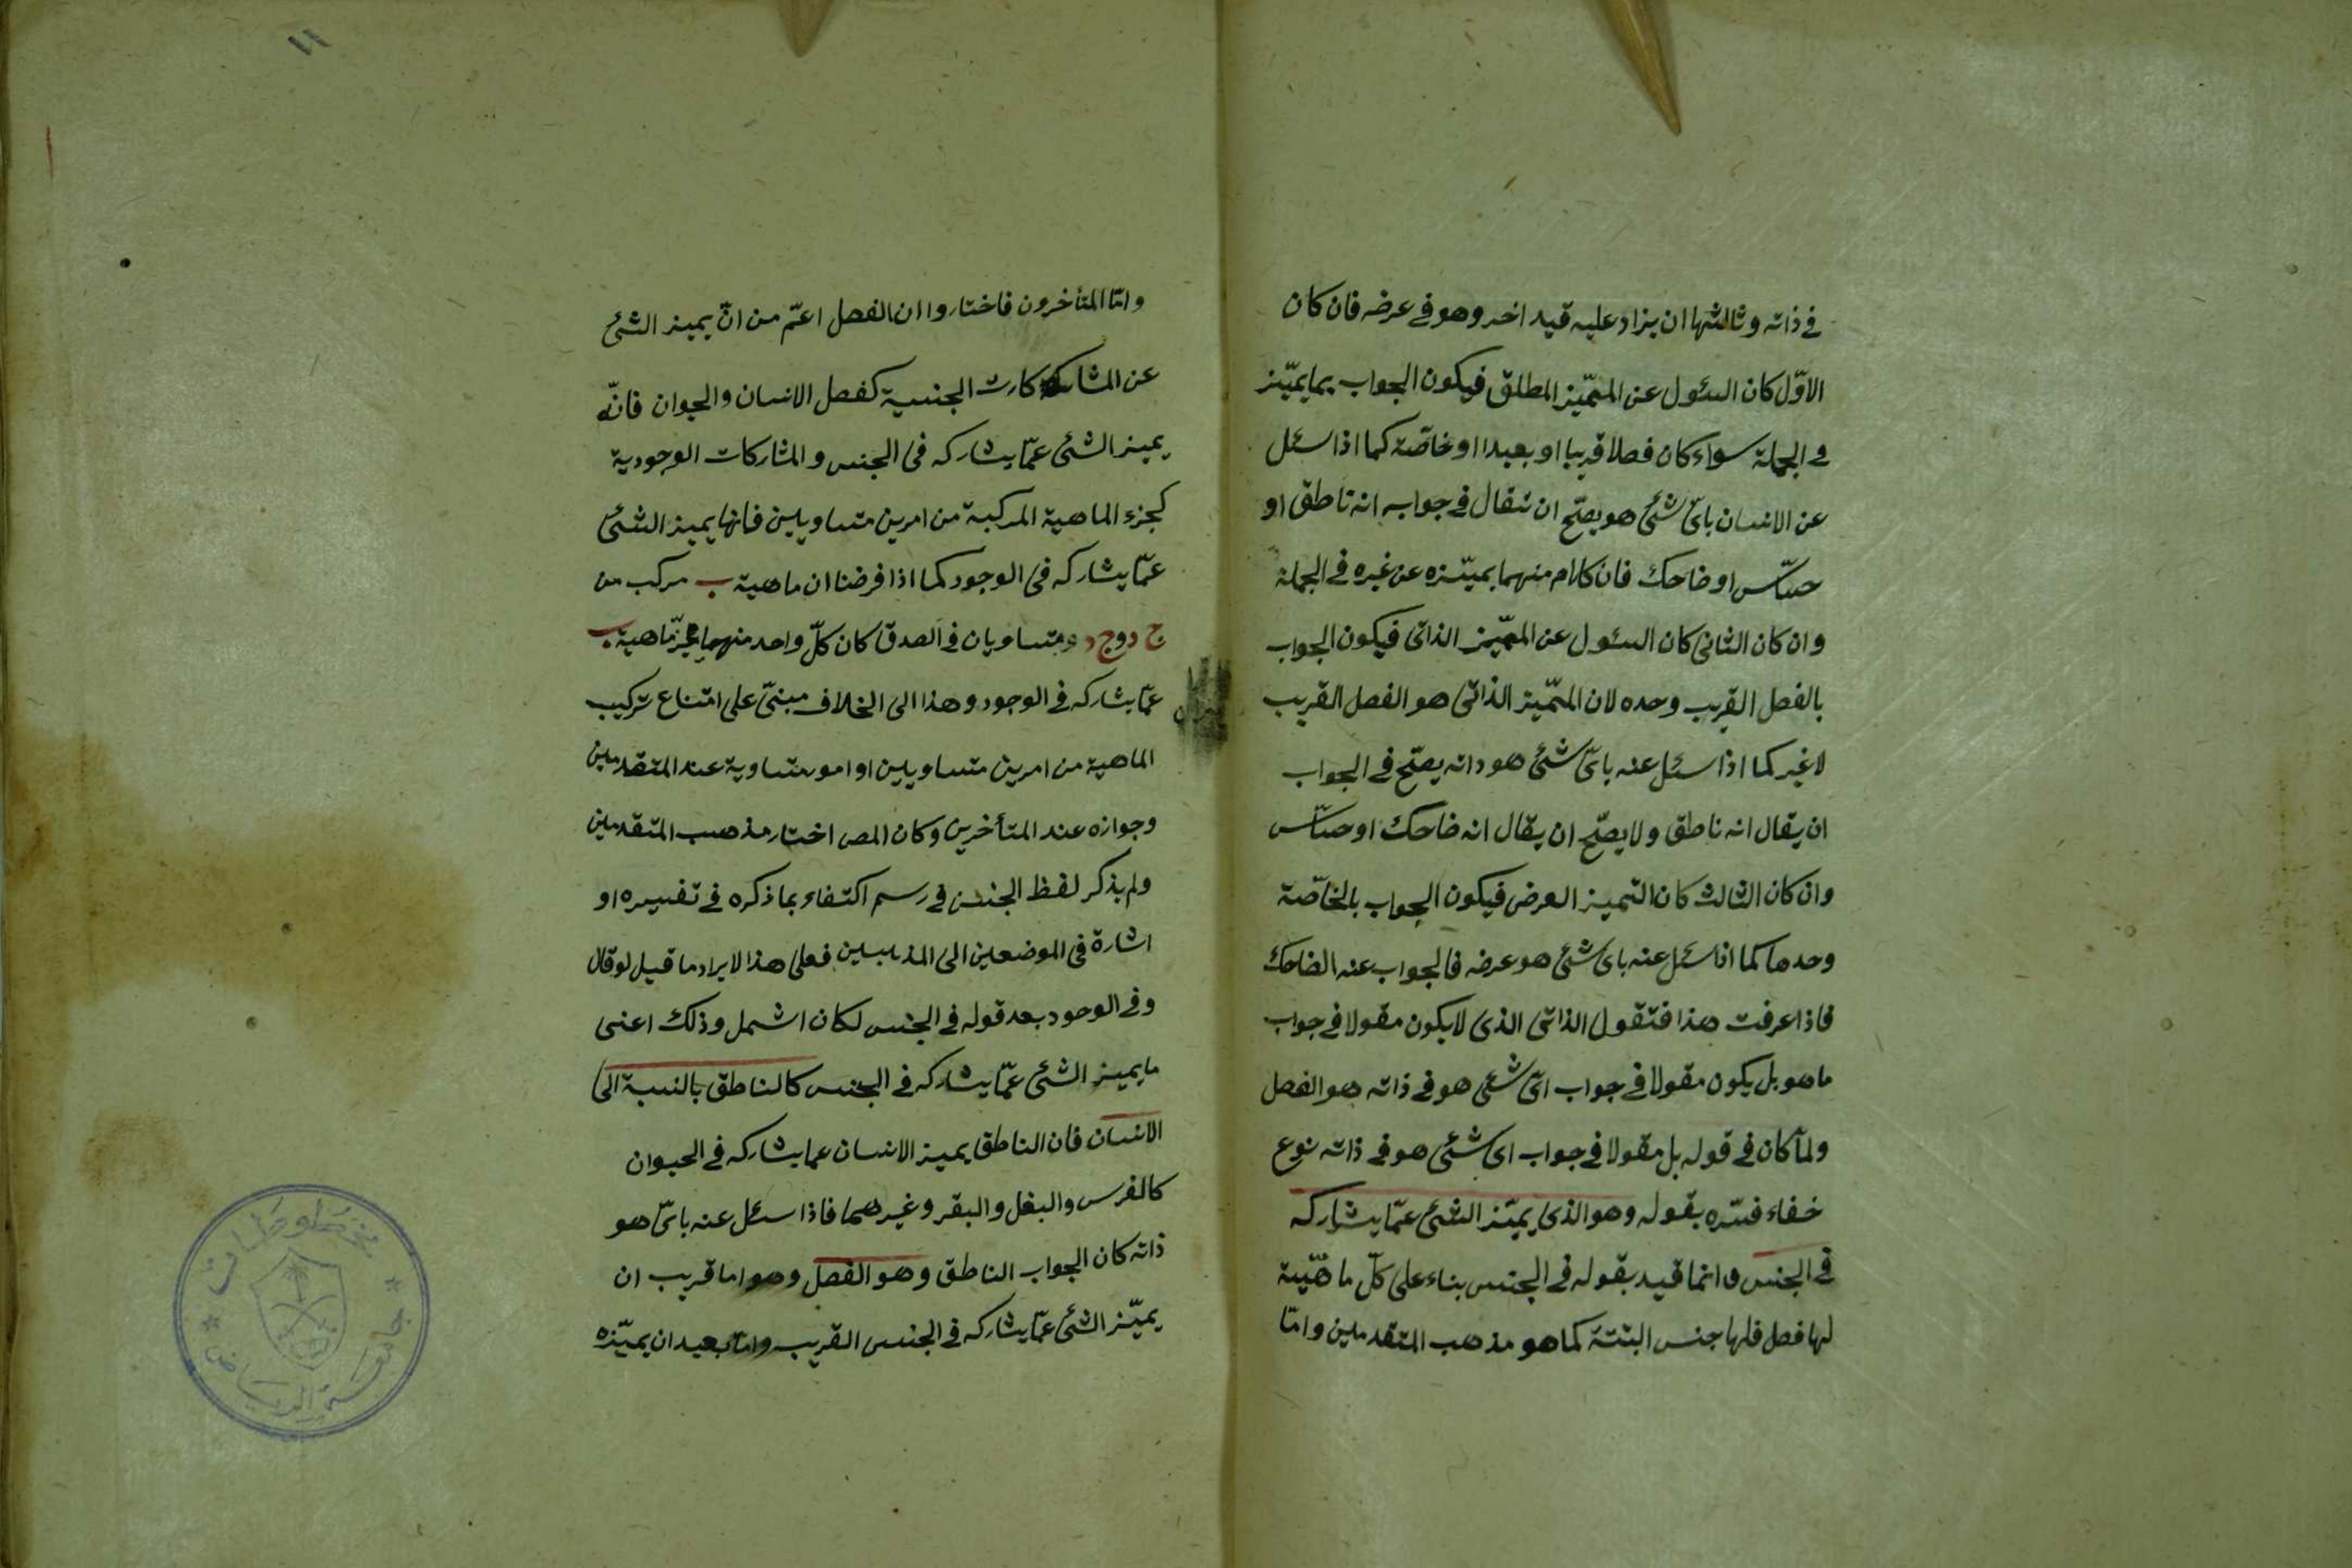 في ذاته وثالثها ان يزاد عليه قيد اخر وهو في عرضه فان كان
الاوّل كان السئول عن المميّز المطلق فيكون الجواب بما يميّز
في الجملة سواء كان فصلا قريبا او بعيدا او خاصّة كما اذا سئل
عن الانسان بائ شئ هو يصّح ان تقال في جوابه انه ناطق او
حسّاس او ضاحك فان كلام منهما يميّزه عن غيره في الجملة
وان كان الثاني كان السئول عن المميّز الذاتي فيكون الجواب
بالفصل القريب وحده لان المميّز الذاتي هو الفصل القريب
لا غير كما اذا سئل عنه بائ شئ هو ذاته يصّح في الجواب
ان يقال انه ناطق ولا يصّح ان يقال انه ضاحك او حسّاس
وان كان الثالث كان التميز العرض فيكون الجواب بالخاصّة
وحدها كما اذا سئل عنه باى شئ هو عرضه فالجواب عنه الضاحك
فاذا عرفت هذا فتقول الذاتي الذى لا يكون مقولا في جواب
ما هو بل يكون مقولا في جواب ائ شئ هو في ذاته هو الفصل
ولمّا كان في قوله بل مقولا في جواب اى شئ هو في ذاته نوع
خفاء فسّره بقوله وهو الذى يميّز الشئ عمّا يشاركه
في الجنس وانما قيد بقوله في الجنس بناء على كلّ ماهيّة
لها فصل فلها جنس البتة كما هو مذهب المتقدمين وامّا
١١
وامّا المتأخرون فاختاروا ان الفصل اعمّ من انّ يميز الشئ
عن المشاركارت الجنسية كفصل الانسان والحيوان فانّه
يميز الشئ عمّا يشاركه فى الجنس والمشاركات الوجودية
كجزء الماهية المركبة من امرين متساويين فانها يميز الشئ
عمّا يشاركه فى الوجود كما اذا فرضنا ان ماهية ب مركب من
ج د وج د ومتساويان في الصدق كان كلّ واحد منهما ماهية ب
عمّا يشاركه في الوجود وهذا الى الخلاف مبنىّ على امتناع تركيب
الماهية من امرين متساويين او امور متساوية عند المتقدمين
وجوازه عند المتأخرين وكان المص اختار مذهب المتقدمين
ولم يذكر لفظ الجنس في رسم اكتفاء بما ذكره في تفسيره او
اشارة فى الموضعين الى المذهبين فعلى هذا لا يراد ما قيل لو قال
وفي الوجود بعد قوله في الجنس لكان اشمل وذلك اعنى
ما يميز الشئ عمّا يشاركه في الجنس كالناطق بالنسبة الى
الانسان فان الناطق يميز الانسان عما يشاركه في الحيوان
كالفرس والبغل والبقر وغيرهما فاذا سئل عنه بائ هو
ذاته كان الجواب الناطق وهو الفصل وهو اما قريب ان
يميّز الشئ عمّا يشاركه في الجنس القريب وامّا بعيد ان يميّزه
مخطوطات
جامعة الرياض